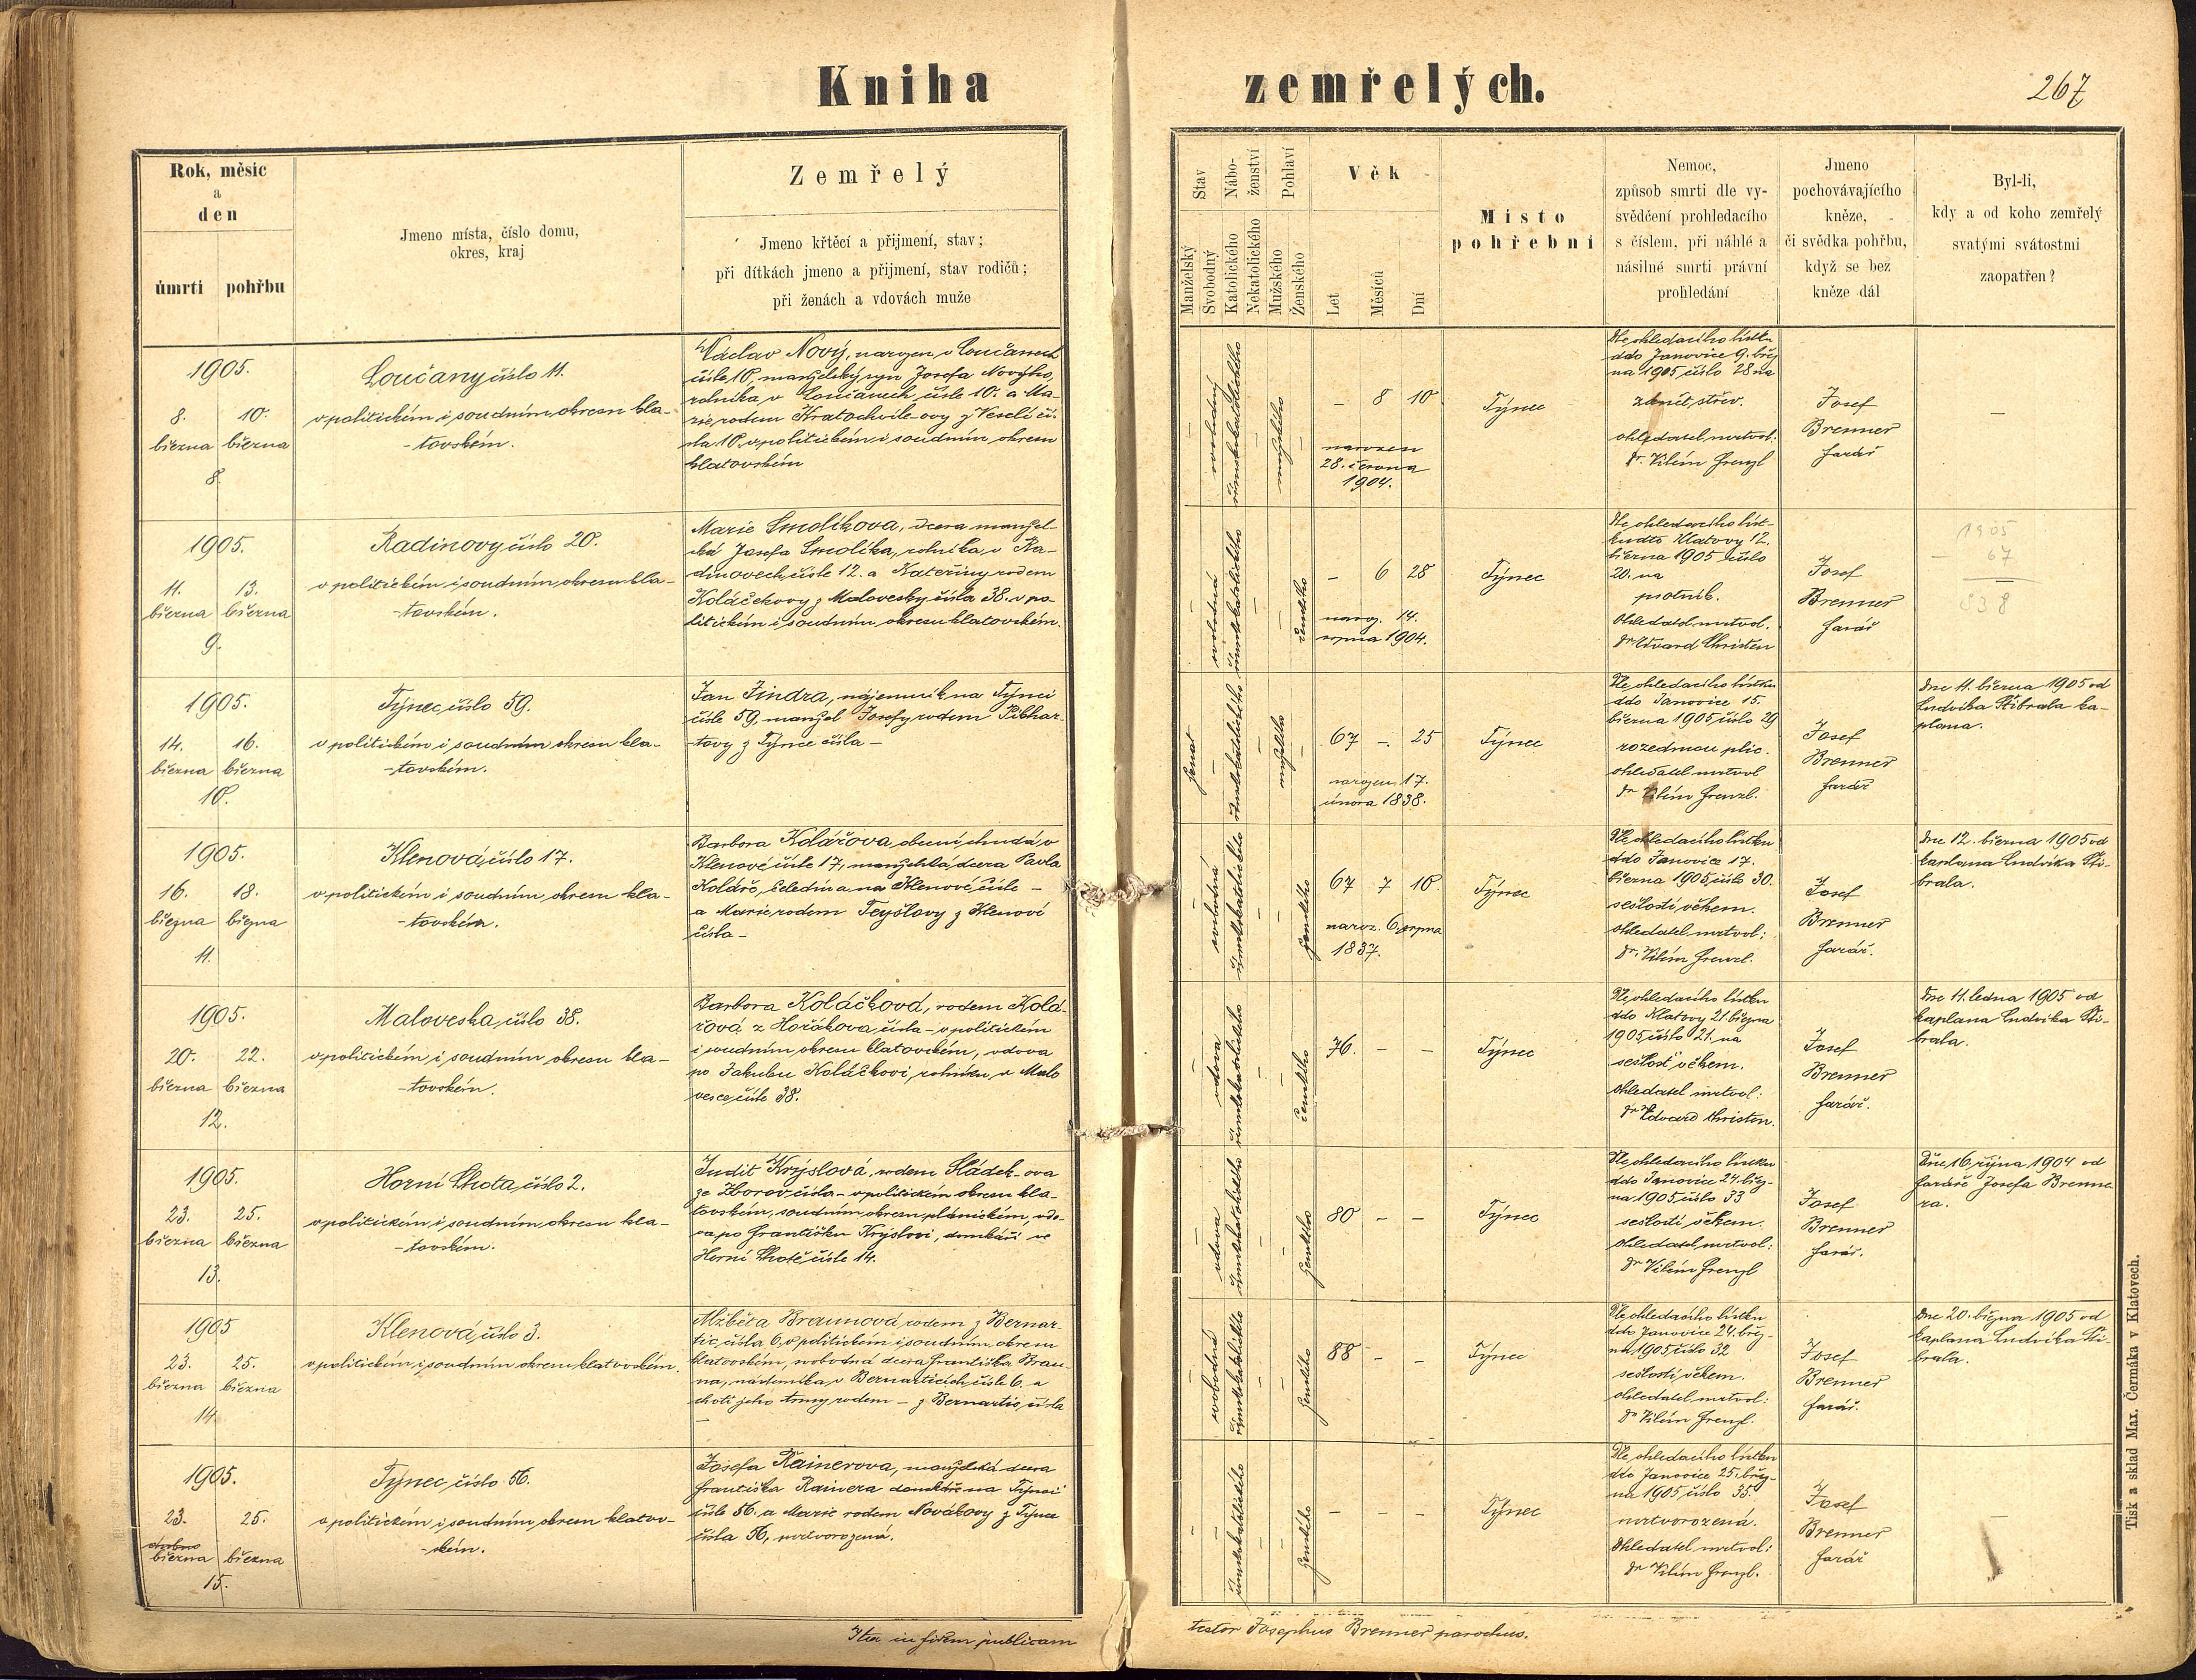 Kniha
zemřelých.
267
Rok, měsíc
a
den
úmrtí
pohřbu
Jmeno místa, číslo domu,
okres, kraj
Zemřelý
Jmeno křtěcí a přijmení, stav;
při dítkách jmeno a přijmení, stav rodičů;
při ženách a vdovách muže
Stav
Manželský
Svobodný
Nábo-
ženství
Katolického
Nekatolického
Pohlaví
Mužského
Ženského
Věk
Let
Měsíců
Dní
Místo
pohřební
Nemoc,
způsob smrti dle vy-
svědčení prohledacího
s číslem, při náhlé a
násilné smrti právní
prohledání
Jmeno
pochovávajícího
kněze,
či svědka pohřbu,
když se bez
kněze dál
Byl-li,
kdy a od koho zemřelý
svatými svátostmi
zaopatřen?
1905.
8. 10.
března března
8.
Loučany číslo 11.
v politickém i soudním okresu kla-
-tovském.
Václav Nový, narozen v Loučanech
čísle 10, manželský syn Josefa Nového,
rolníka v Loučanech čísle 10. a Ma-
rie, rodem Kratochvíle-ovy z Veselí čí-
sla 10. v politickém i soudním okresu
klatovském
svobodný
římskokatolického
mužského
– 8 10
narozen
28. června
1904.
Týnec
Dle ohledacího lístku
ddo Janovice 9. břez
na 1905 číslo 28 na
zánět střev.
ohledatel mrtvol:
Dr. Vilém Frenzl
Josef
Brenner
farář
–
1905.
11. 13.
března března
9.
Radinovy číslo 20.
v politickém i soudním okresu kla-
-tovském.
Marie Smolíkova, dcera manžel-
ská Josefa Smolíka, rolníka v Ra-
dinovech čísle 12. a Kateřiny rodem
Koláčekovy z Malovesky čísla 38. v po-
litickém i soudním okresu klatovském.
svobodná
římskokatolického
ženského
– 6 28
naroz. 14.
srpna 1904.
Týnec
Dle ohledacího líst-
ku ddto Klatovy 12.
března 1905 číslo
20. na
psotník.
Ohledatel mrtvol.
Dr. Edvard Christen
Josef
Brenner
farář
1905
67
838
1905.
14. 16.
března března
10.
Týnec číslo 59.
v politickém i soudním okresu kla-
-tovském.
Jan Jindra, nájemník na Týnci
čísle 59. manžel Josefy rodem Pibhar-
-tovy z Týnce čísla –
ženat
římskokatolického
mužského
67 – 25
narozen 17.
února 1838.
Týnec
Dle ohledacího lístku
ddo Janovice 15.
března 1905 číslo 29
rozedmou plic.
ohledatel mrtvol
Dr. Vilém Frenzl.
Josef
Brenner
farář
Dne 11. března 1905 od
Ludvíka Stibrala ka-
plana.
1905.
16. 18.
března března
11.
Klenová číslo 17.
v politickém i soudním okresu kla-
-tovském.
Barbora Kolářova, obecní chudá v
Klenové čísle 17, manželská dcera Pavla
Koláře, čeledína na Klenové čísle –
a Marie rodem Teyšlovy z Klenové
čísla –
svobodná
římskokatolického
ženského
67 7 10
naroz. 6. srpna
1837.
Týnec
Dle ohledacího lístku
ddo Janovice 17.
března 1905 číslo 30.
sešlostí věkem.
ohledatel mrtvol:
Dr. Vilém Frenzl.
Josef
Brenner
farář.
Dne 12. března 1905 od
kaplana Ludvíka Sti-
brala.
1905.
20. 22.
března března
12.
Maloveska číslo 38.
v politickém i soudním okresu kla-
-tovském.
Barbora Koláčková, rodem Kolá-
řová z Hořákova čísla – v politickém
i soudním okresu klatovském, vdova
po Jakubu Koláčkovi, rolníku v Malo
vesce čísle 38.
vdova
římskokatolického
ženského
76. – –
Týnec
Dle ohledacího lístku
ddo Klatovy 21. března
1905 číslo 21. na
sešlost věkem.
ohledatel mrtvol:
Dr. Edvard Christen.
Josef
Brenner
farář.
Dne 11. ledna 1905 od
kaplana Ludvíka Sti-
brala.
1905.
23. 25.
března března
13.
Horní Lhota, číslo 2.
v politickém i soudním okresu kla-
-tovském.
Judit Krýslová, rodem Sládek-ova
ze Zborov čísla – v politickém okresu kla-
tovském, soudním okresu plánickém, vdo-
va po Františku Krýslovi, domkáři ve
Horní Lhotě čísle 14.
vdova
římskokatolického
ženského
80 – –
Týnec
Dle ohledacího lístku
ddo Janovice 24. břez-
na 1905 číslo 33
sešlostí věkem.
Ohledatel mrtvol:
Dr. Vilém Frenzl
Josef
Brenner
farář.
Dne 16. října 1904 od
faráře Josefa Brenne
ra.
1905
23. 25.
března března
14.
Klenová číslo 3.
v politickém i soudním okresu klatovském.
Alžběta Braunová rodem z Bernar-
tic čísla 6. v politickém i soudním okresu
klatovském, svobodná dcera Františka Brau-
na, nádeníka v Bernarticích čísle 6. a
choti jeho Anny rodem – z Bernartic čísla
–
svobodná
římskokatolického
ženského
88 – –
Týnec
Dle ohledacího lístku
ddo Janovice 24. břez-
na 1905 číslo 32
sešlostí věkem.
ohledatel mrtvol:
Dr. Vilém Frenzl.
Josef
Brenner
farář.
Dne 20. března 1905 od
kaplana Ludvíka Sti-
brala.
1905.
23. 25.
března března
15.
Týnec číslo 56.
v politickém i soudním okresu klatov-
-ském.
Josefa Rainerova, manželská dcera
Františka Rainera domkáře na Týnci
čísle 56. a Marie rodem Novákovy z Týnce
čísla 56, mrtvorozená.
římskokatolického
ženského
– – –
Týnec
Dle ohledacího lístku
ddo Janovice 25. břez-
na 1905 číslo 35.
mrtvorozená.
Ohledatel mrtvol:
Dr. Vilém Frenzl.
Josef
Brenner
farář
–
Ita in fidem publicam
testor Josephus Brenner parochus.
Tisk a sklad Max. Čermáka v Klatovech.